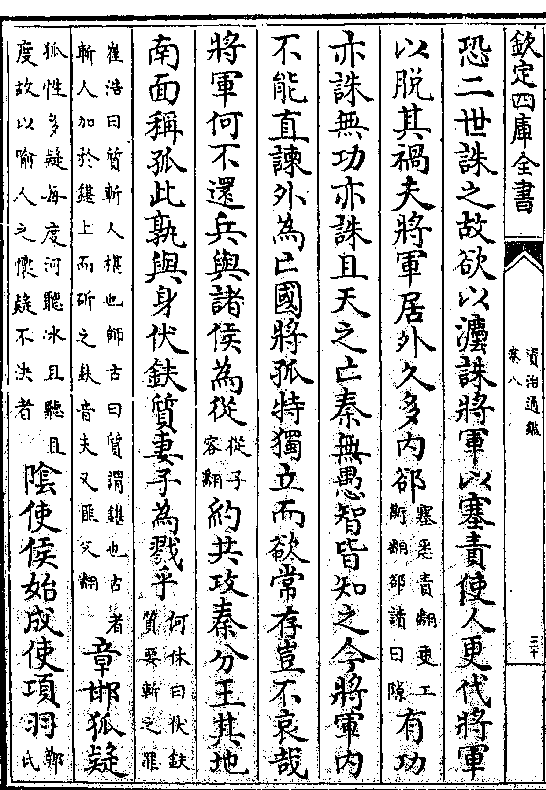 欽定四庫全書
資治通鑑
卷八
二十
恐二世誅之故欲以灋誅將軍以塞責使人更代將軍
以脫其禍夫將軍居外久多內郤塞悉責翻更工
衡翻郤讀曰隙有功
亦誅無功亦誅且天之亡秦無愚智皆知之今將軍內
不能直諫外為亡國將孤特獨立而欲常存豈不哀哉
將軍何不還兵與諸侯為從從子
容翻約共攻秦分王其地
南面稱孤此孰與身伏鈇質妻子為戮乎何休曰伏鈇
質要斬之罪
崔浩曰質斬人椹也師古曰質謂鍖也古者
斬人加於鍖上而斫之鈇音夫又匪父翻章邯狐疑
狐性多疑每度河聽冰且聽且
度故以喻人之懷疑不決者陰使侯始成使項羽鄭
氏